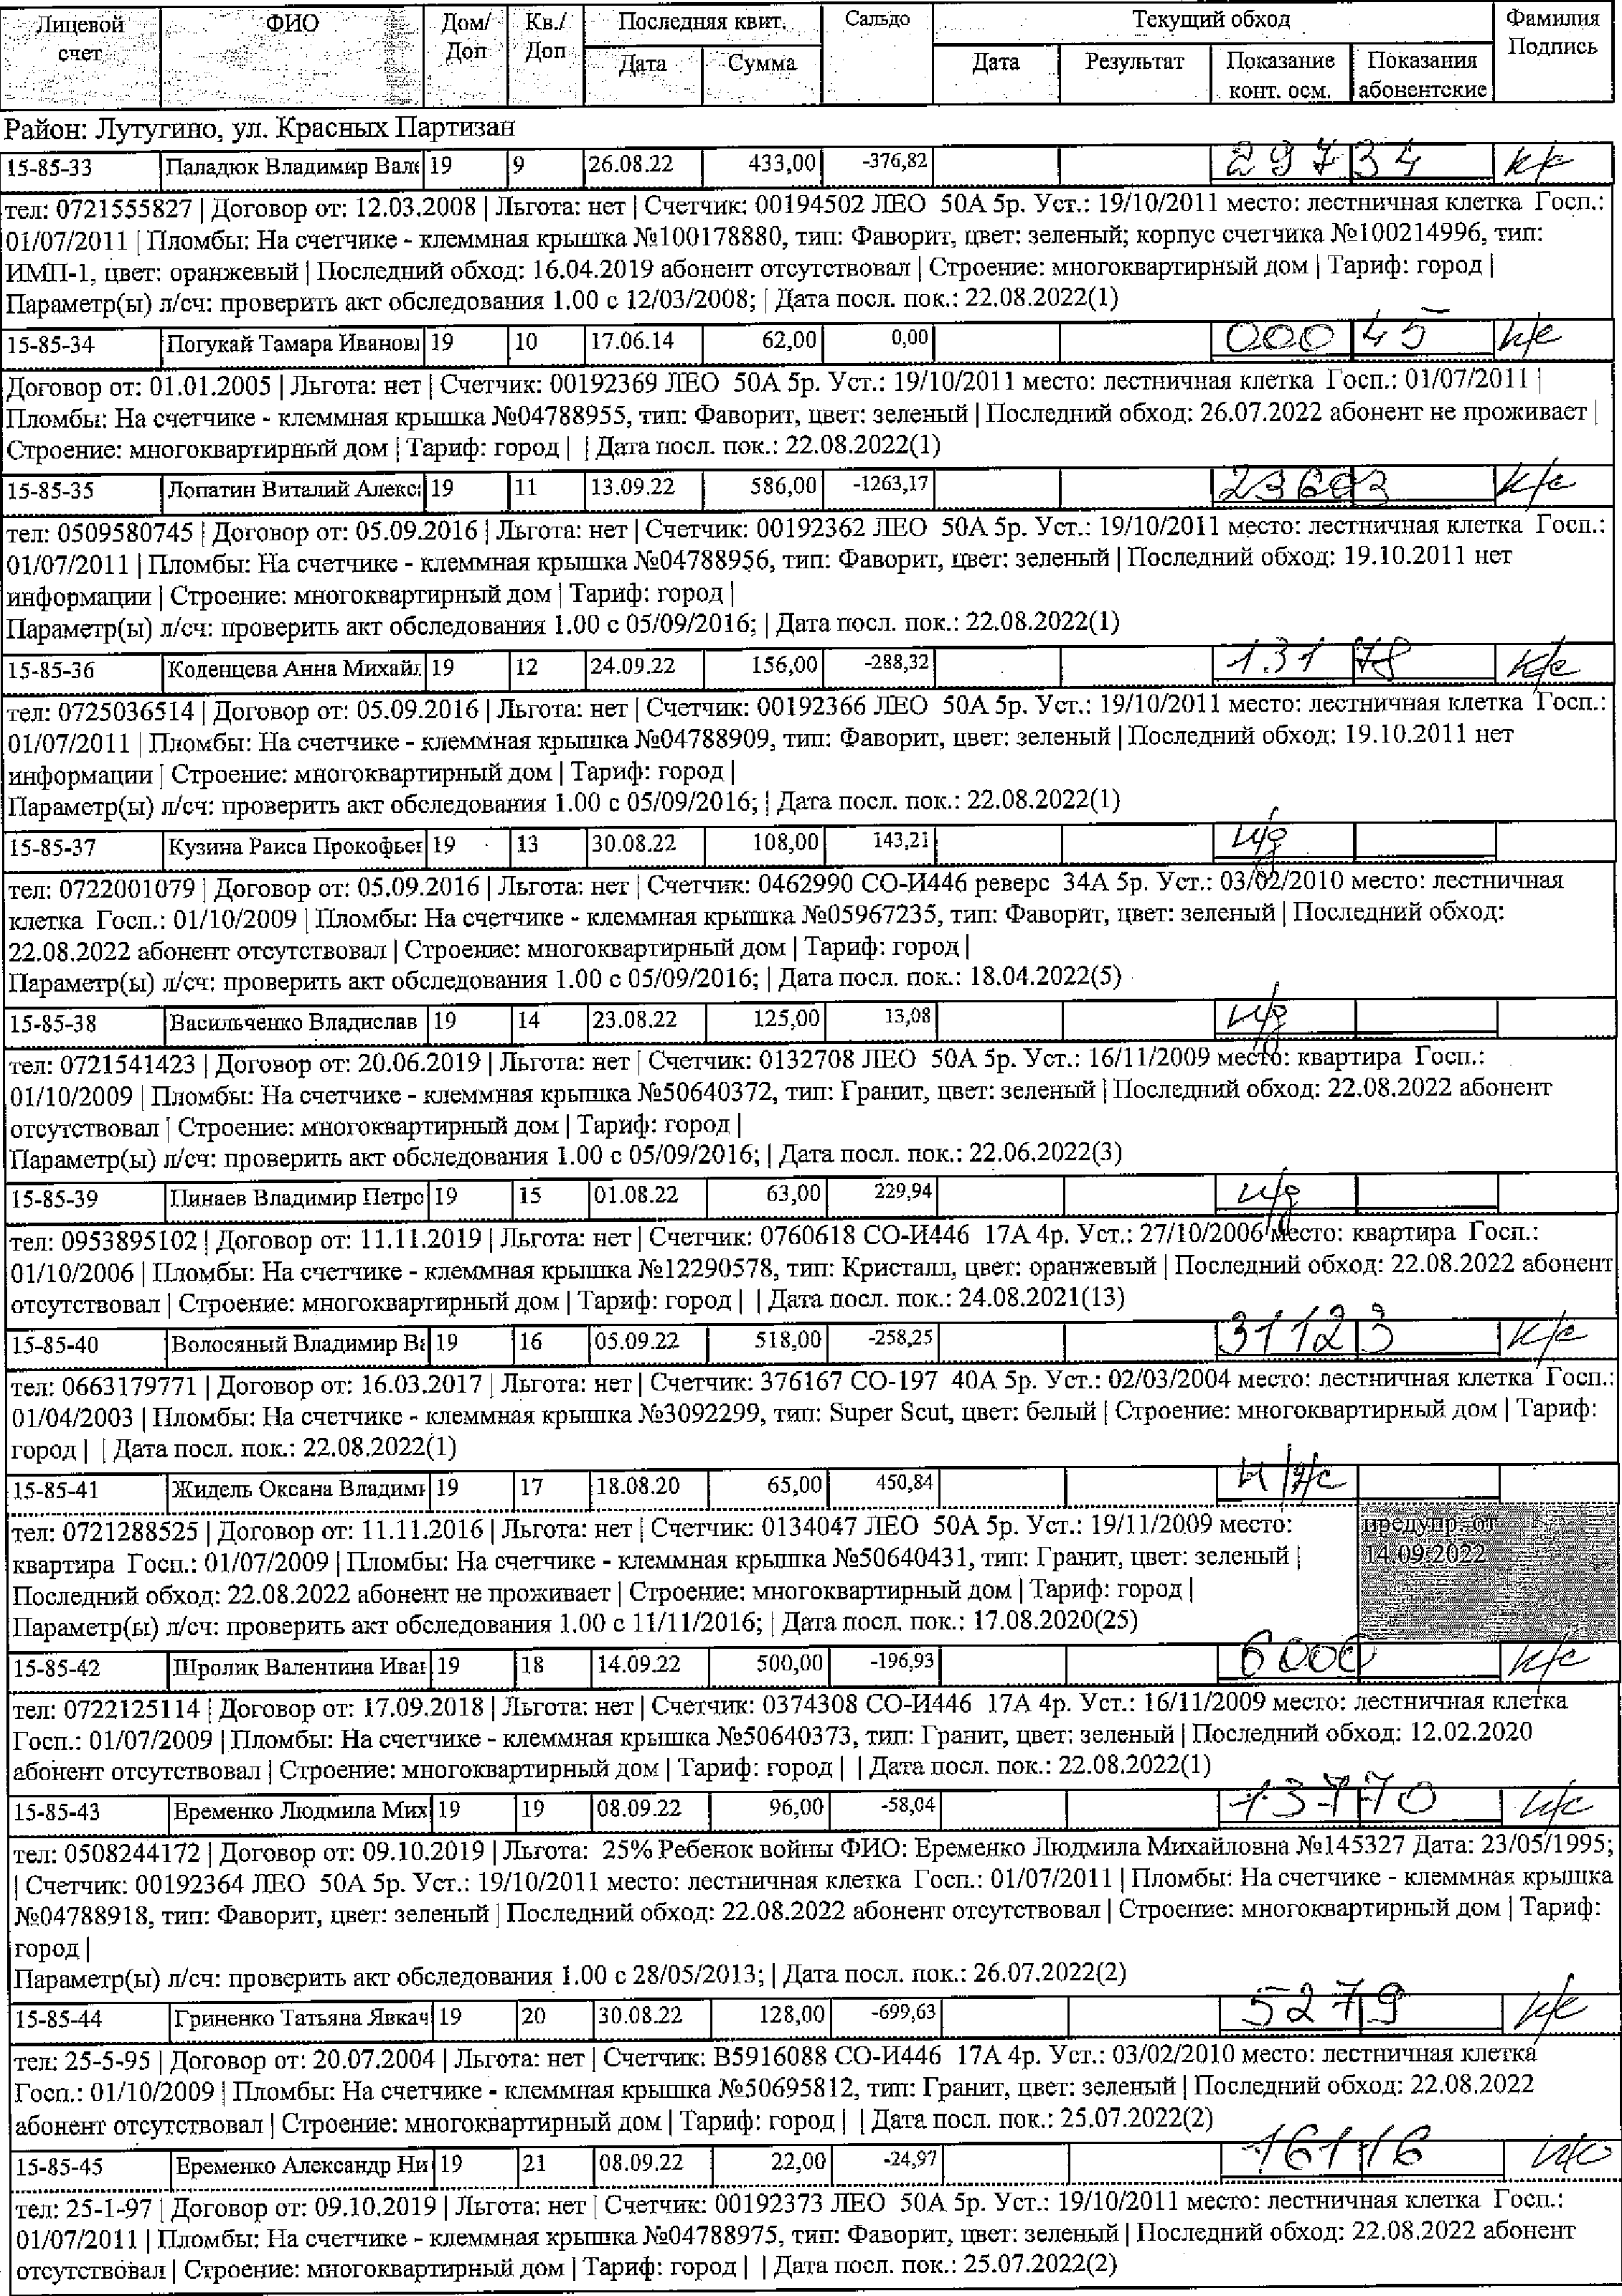 Лицевой счет | ФИО | Дом/Доп | Кв./Доп | Последняя квит. Дата | Сумма | Сальдо | Текущий обход Дата | Результат | Показание конт. осм. | Показания абонентские | Фамилия Подпись
Район: Лутугино, ул. Красных Партизан
15-85-33 Паладюк Владимир Вале 19 9 26.08.22 433,00 -376,82 29734 к/с
тел: 0721555827 | Договор от: 12.03.2008 | Льгота: нет | Счетчик: 00194502 ЛЕО 50А 5р. Уст.: 19/10/2011 место: лестничная клетка Госп.:
01/07/2011 | Пломбы: На счетчике - клеммная крышка №100178880, тип: Фаворит, цвет: зеленый; корпус счетчика №100214996, тип:
ИМП-1, цвет: оранжевый | Последний обход: 16.04.2019 абонент отсутствовал | Строение: многоквартирный дом | Тариф: город |
Параметр(ы) л/сч: проверить акт обследования 1.00 с 12/03/2008; | Дата посл. пок.: 22.08.2022(1)
15-85-34 Погукай Тамара Иванов 19 10 17.06.14 62,00 0,00 00045 к/с
Договор от: 01.01.2005 | Льгота: нет | Счетчик: 00192369 ЛЕО 50А 5р. Уст.: 19/10/2011 место: лестничная клетка Госп.: 01/07/2011 |
Пломбы: На счетчике - клеммная крышка №04788955, тип: Фаворит, цвет: зеленый | Последний обход: 26.07.2022 абонент не проживает |
Строение: многоквартирный дом | Тариф: город | | Дата посл. пок.: 22.08.2022(1)
15-85-35 Лопатин Виталий Алекс 19 11 13.09.22 586,00 -1263,17 к/с
тел: 0509580745 | Договор от: 05.09.2016 | Льгота: нет | Счетчик: 00192362 ЛЕО 50А 5р. Уст.: 19/10/2011 место: лестничная клетка Госп.:
01/07/2011 | Пломбы: На счетчике - клеммная крышка №04788956, тип: Фаворит, цвет: зеленый | Последний обход: 19.10.2011 нет
информации | Строение: многоквартирный дом | Тариф: город |
Параметр(ы) л/сч: проверить акт обследования 1.00 с 05/09/2016; | Дата посл. пок.: 22.08.2022(1)
15-85-36 Коденцева Анна Михай 19 12 24.09.22 156,00 -288,32 13178 к/с
тел: 0725036514 | Договор от: 05.09.2016 | Льгота: нет | Счетчик: 00192366 ЛЕО 50А 5р. Уст.: 19/10/2011 место: лестничная клетка Госп.:
01/07/2011 | Пломбы: На счетчике - клеммная крышка №04788909, тип: Фаворит, цвет: зеленый | Последний обход: 19.10.2011 нет
информации | Строение: многоквартирный дом | Тариф: город |
Параметр(ы) л/сч: проверить акт обследования 1.00 с 05/09/2016; | Дата посл. пок.: 22.08.2022(1)
15-85-37 Кузина Раиса Прокофье 19 13 30.08.22 108,00 143,21 н/д
тел: 0722001079 | Договор от: 05.09.2016 | Льгота: нет | Счетчик: 0462990 СО-И446 реверс 34А 5р. Уст.: 03/02/2010 место: лестничная
клетка Госп.: 01/10/2009 | Пломбы: На счетчике - клеммная крышка №05967235, тип: Фаворит, цвет: зеленый | Последний обход:
22.08.2022 абонент отсутствовал | Строение: многоквартирный дом | Тариф: город |
Параметр(ы) л/сч: проверить акт обследования 1.00 с 05/09/2016; | Дата посл. пок.: 18.04.2022(5)
15-85-38 Васильченко Владислав 19 14 23.08.22 125,00 13,08 н/д
тел: 0721541423 | Договор от: 20.06.2019 | Льгота: нет | Счетчик: 0132708 ЛЕО 50А 5р. Уст.: 16/11/2009 место: квартира Госп.:
01/10/2009 | Пломбы: На счетчике - клеммная крышка №50640372, тип: Гранит, цвет: зеленый | Последний обход: 22.08.2022 абонент
отсутствовал | Строение: многоквартирный дом | Тариф: город |
Параметр(ы) л/сч: проверить акт обследования 1.00 с 05/09/2016; | Дата посл. пок.: 22.06.2022(3)
15-85-39 Пинаев Владимир Петро 19 15 01.08.22 63,00 229,94 н/д
тел: 0953895102 | Договор от: 11.11.2019 | Льгота: нет | Счетчик: 0760618 СО-И446 17А 4р. Уст.: 27/10/2006 место: квартира Госп.:
01/10/2006 | Пломбы: На счетчике - клеммная крышка №12290578, тип: Кристалл, цвет: оранжевый | Последний обход: 22.08.2022 абонент
отсутствовал | Строение: многоквартирный дом | Тариф: город | | Дата посл. пок.: 24.08.2021(13)
15-85-40 Волосяный Владимир Ва 19 16 05.09.22 518,00 -258,25 31123 к/с
тел: 0663179771 | Договор от: 16.03.2017 | Льгота: нет | Счетчик: 376167 СО-197 40А 5р. Уст.: 02/03/2004 место: лестничная клетка Госп.:
01/04/2003 | Пломбы: На счетчике - клеммная крышка №3092299, тип: Super Scut, цвет: белый | Строение: многоквартирный дом | Тариф:
город | | Дата посл. пок.: 22.08.2022(1)
15-85-41 Жидель Оксана Владим 19 17 18.08.20 65,00 450,84
тел: 0721288525 | Договор от: 11.11.2016 | Льгота: нет | Счетчик: 0134047 ЛЕО 50А 5р. Уст.: 19/11/2009 место: предупр. от
квартира Госп.: 01/07/2009 | Пломбы: На счетчике - клеммная крышка №50640431, тип: Гранит, цвет: зеленый | 14.09.2022
Последний обход: 22.08.2022 абонент не проживает | Строение: многоквартирный дом | Тариф: город |
Параметр(ы) л/сч: проверить акт обследования 1.00 с 11/11/2016; | Дата посл. пок.: 17.08.2020(25)
15-85-42 Шролик Валентина Ива 19 18 14.09.22 500,00 -196,93 6006 к/с
тел: 0722125114 | Договор от: 17.09.2018 | Льгота: нет | Счетчик: 0374308 СО-И446 17А 4р. Уст.: 16/11/2009 место: лестничная клетка
Госп.: 01/07/2009 | Пломбы: На счетчике - клеммная крышка №50640373, тип: Гранит, цвет: зеленый | Последний обход: 12.02.2020
абонент отсутствовал | Строение: многоквартирный дом | Тариф: город | | Дата посл. пок.: 22.08.2022(1)
15-85-43 Еременко Людмила Мих 19 19 08.09.22 96,00 -58,04 13770 к/с
тел: 0508244172 | Договор от: 09.10.2019 | Льгота: 25% Ребенок войны ФИО: Еременко Людмила Михайловна №145327 Дата: 23/05/1995;
| Счетчик: 00192364 ЛЕО 50А 5р. Уст.: 19/10/2011 место: лестничная клетка Госп.: 01/07/2011 | Пломбы: На счетчике - клеммная крышка
№04788918, тип: Фаворит, цвет: зеленый | Последний обход: 22.08.2022 абонент отсутствовал | Строение: многоквартирный дом | Тариф:
город |
Параметр(ы) л/сч: проверить акт обследования 1.00 с 28/05/2013; | Дата посл. пок.: 26.07.2022(2)
15-85-44 Гриненко Татьяна Явкач 19 20 30.08.22 128,00 -699,63 5279 к/с
тел: 25-5-95 | Договор от: 20.07.2004 | Льгота: нет | Счетчик: В5916088 СО-И446 17А 4р. Уст.: 03/02/2010 место: лестничная клетка
Госп.: 01/10/2009 | Пломбы: На счетчике - клеммная крышка №50695812, тип: Гранит, цвет: зеленый | Последний обход: 22.08.2022
абонент отсутствовал | Строение: многоквартирный дом | Тариф: город | | Дата посл. пок.: 25.07.2022(2)
15-85-45 Еременко Александр Ни 19 21 08.09.22 22,00 -24,97 16116 к/с
тел: 25-1-97 | Договор от: 09.10.2019 | Льгота: нет | Счетчик: 00192373 ЛЕО 50А 5р. Уст.: 19/10/2011 место: лестничная клетка Госп.:
01/07/2011 | Пломбы: На счетчике - клеммная крышка №04788975, тип: Фаворит, цвет: зеленый | Последний обход: 22.08.2022 абонент
отсутствовал | Строение: многоквартирный дом | Тариф: город | | Дата посл. пок.: 25.07.2022(2)